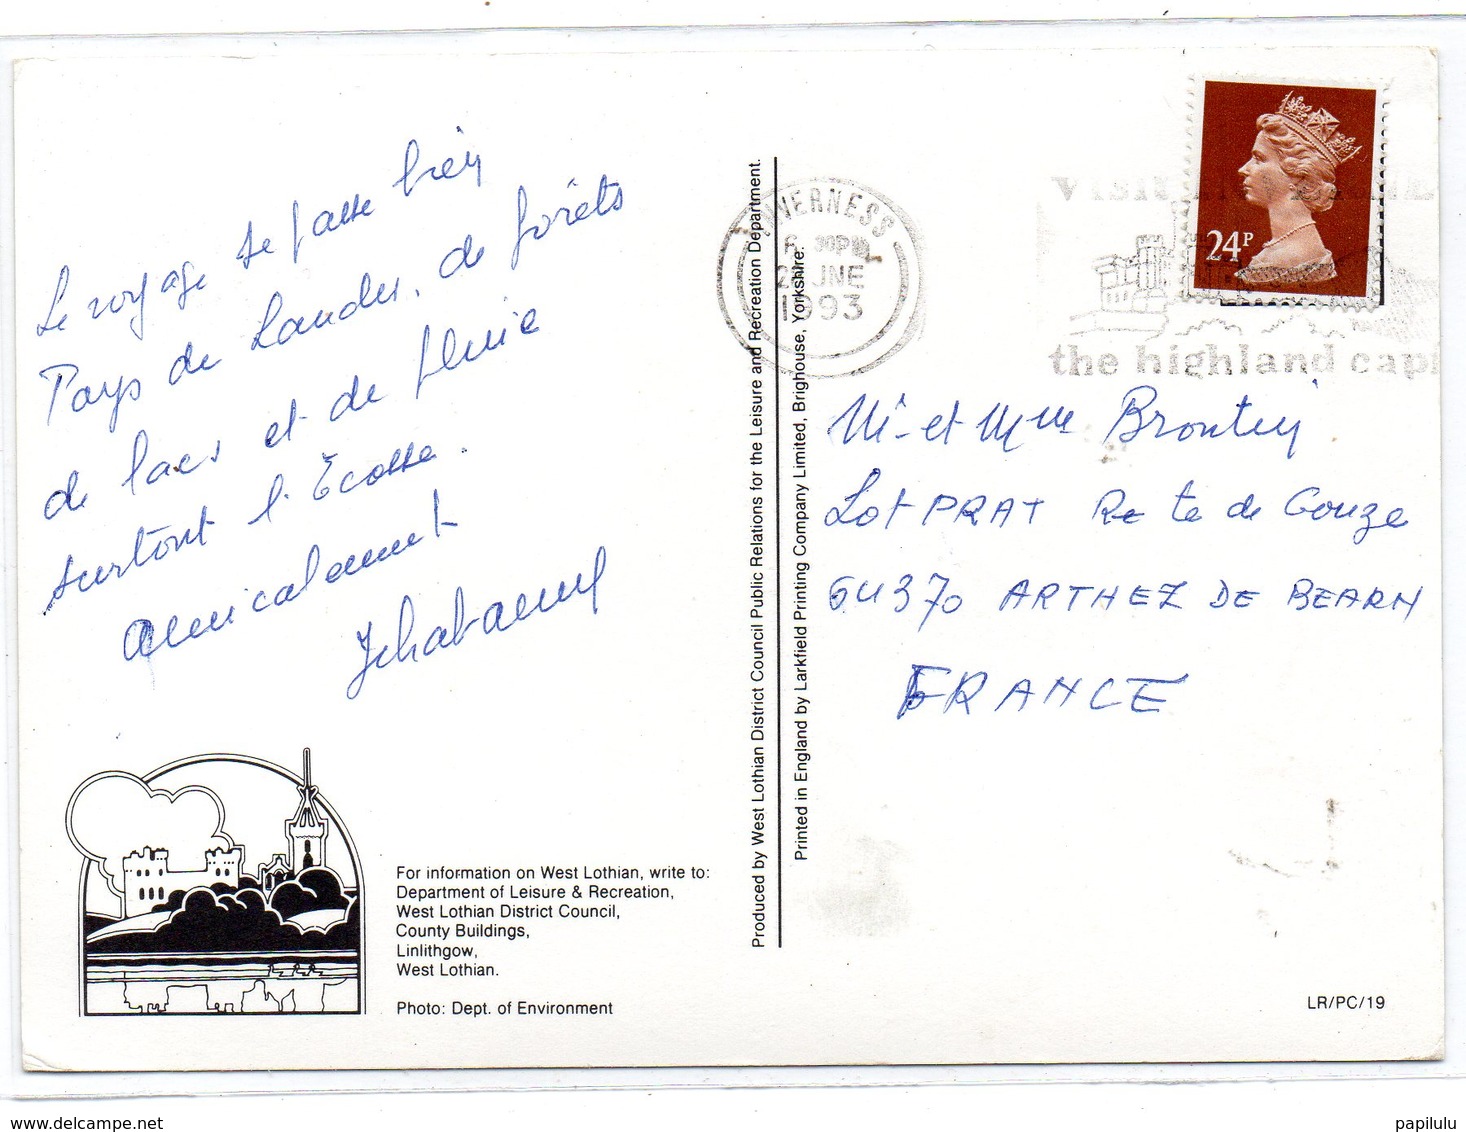 Le voyage se passe bien
Pays de Landes, de forêts
de lacs et de pluie
surtout l'Ecosse.
Amicalement
For information on West Lothian, write to:
Department of Leisure & Recreation,
West Lothian District Council,
County Buildings,
Linlithgow,
West Lothian.
Photo: Dept. of Environment
Produced by West Lothian District Council Public Relations for the Leisure and Recreation Department.
Printed in England by Larkfield Printing Company Limited, Brighouse, Yorkshire.
INVERNESS
JNE
1993
24P
VISIT
the highland
Mr et Mme
Lot PRAT Rte de Gouze
64370 ARTHEZ DE BEARN
FRANCE
LR/PC/19
www.delcampe.net
papilulu